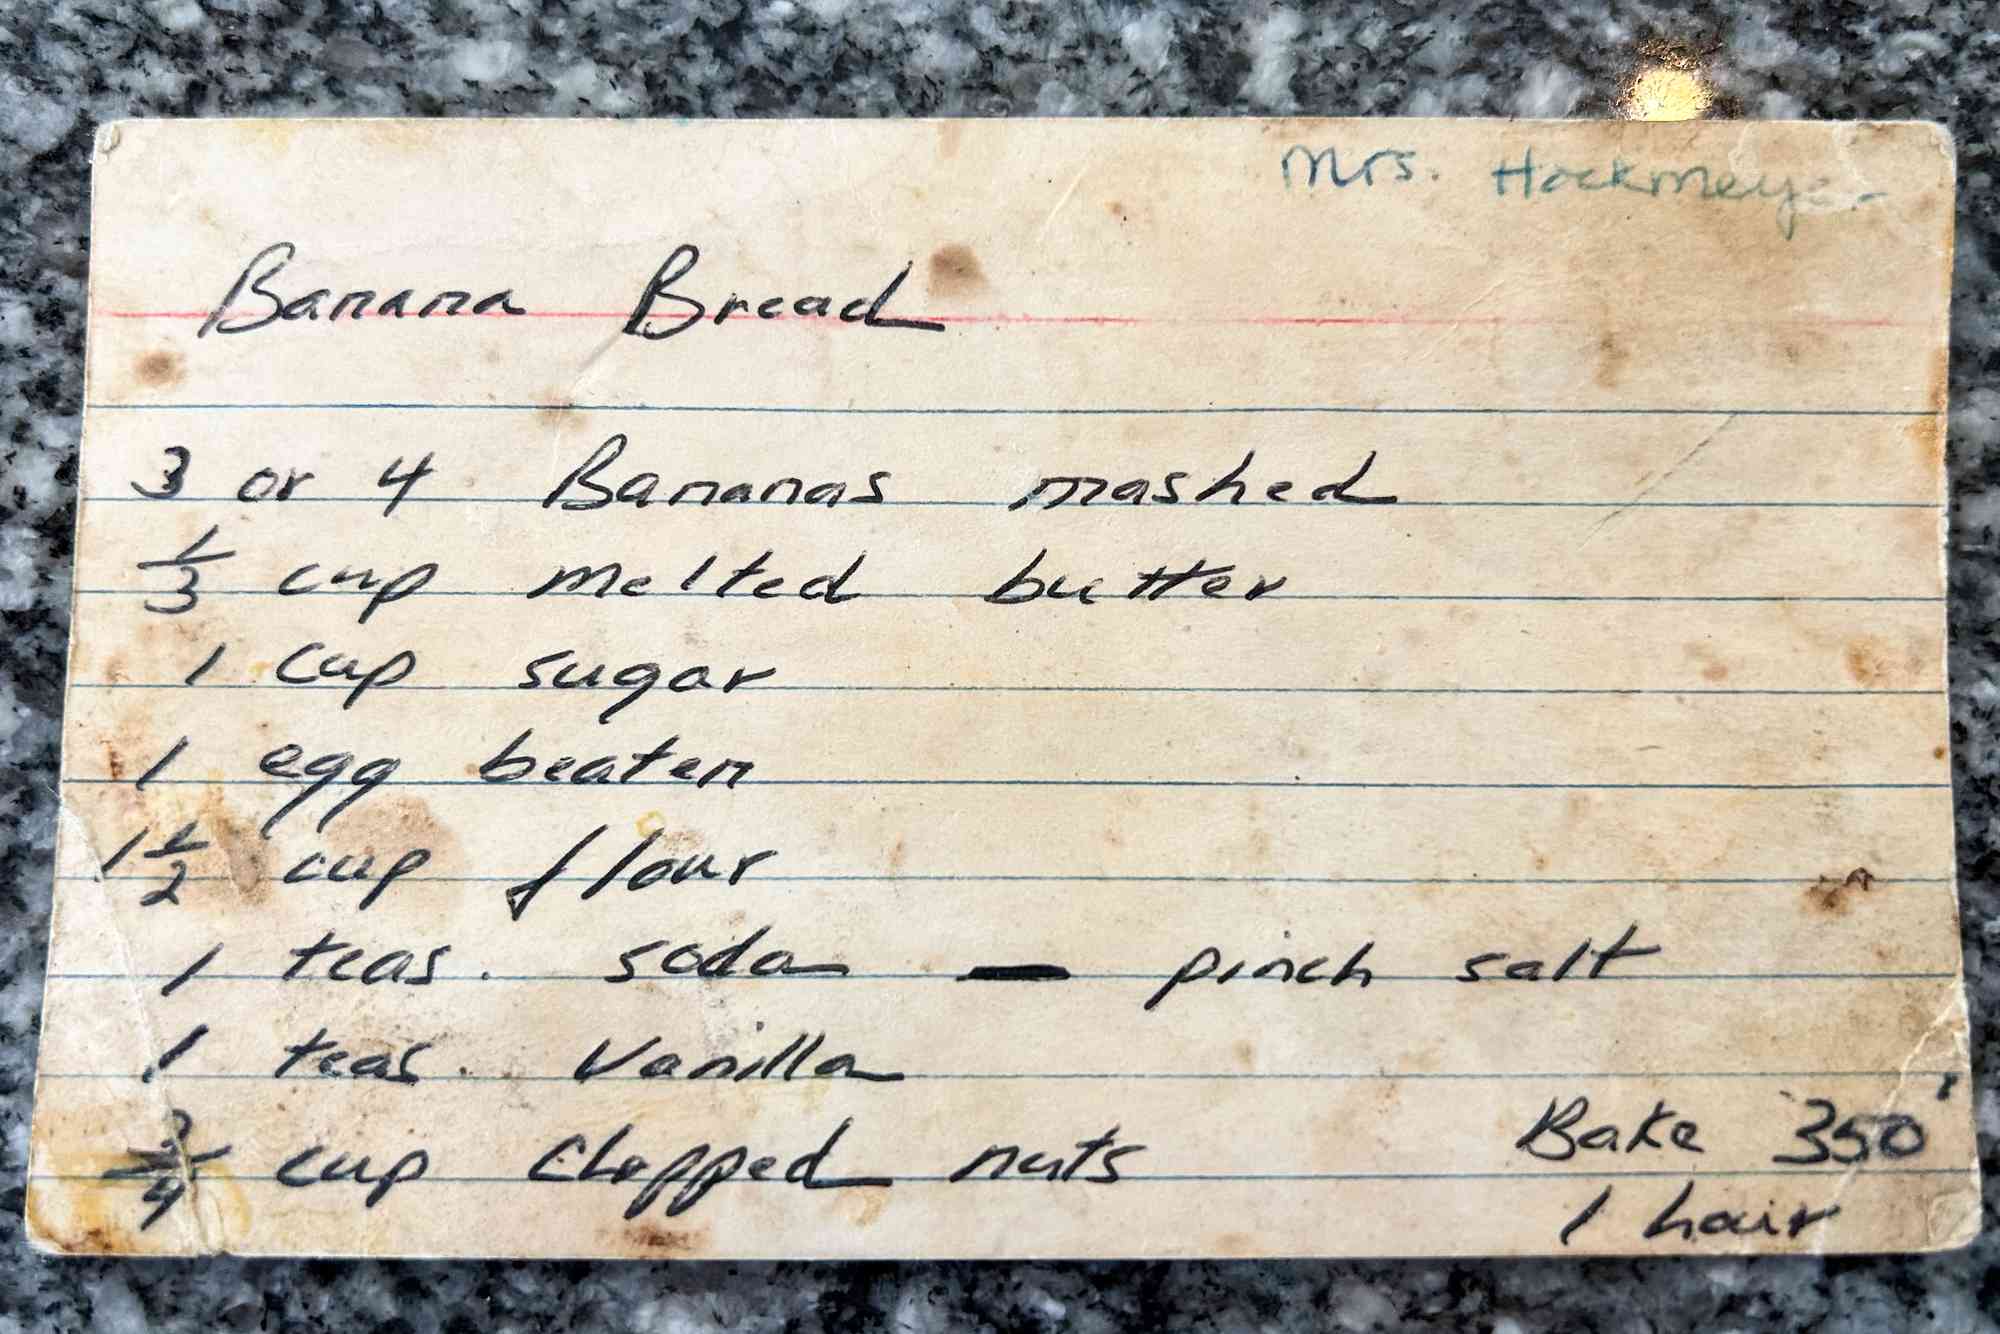 Mrs. Hockmeyer
Banana Bread
3 or 4 Bananas mashed
1/3 cup melted butter
1 cup sugar
1 egg beaten
1 1/2 cup flour
1 teas. soda — pinch salt
1 teas. Vanilla
3/4 cup chopped nuts
Bake 350°
1 hair